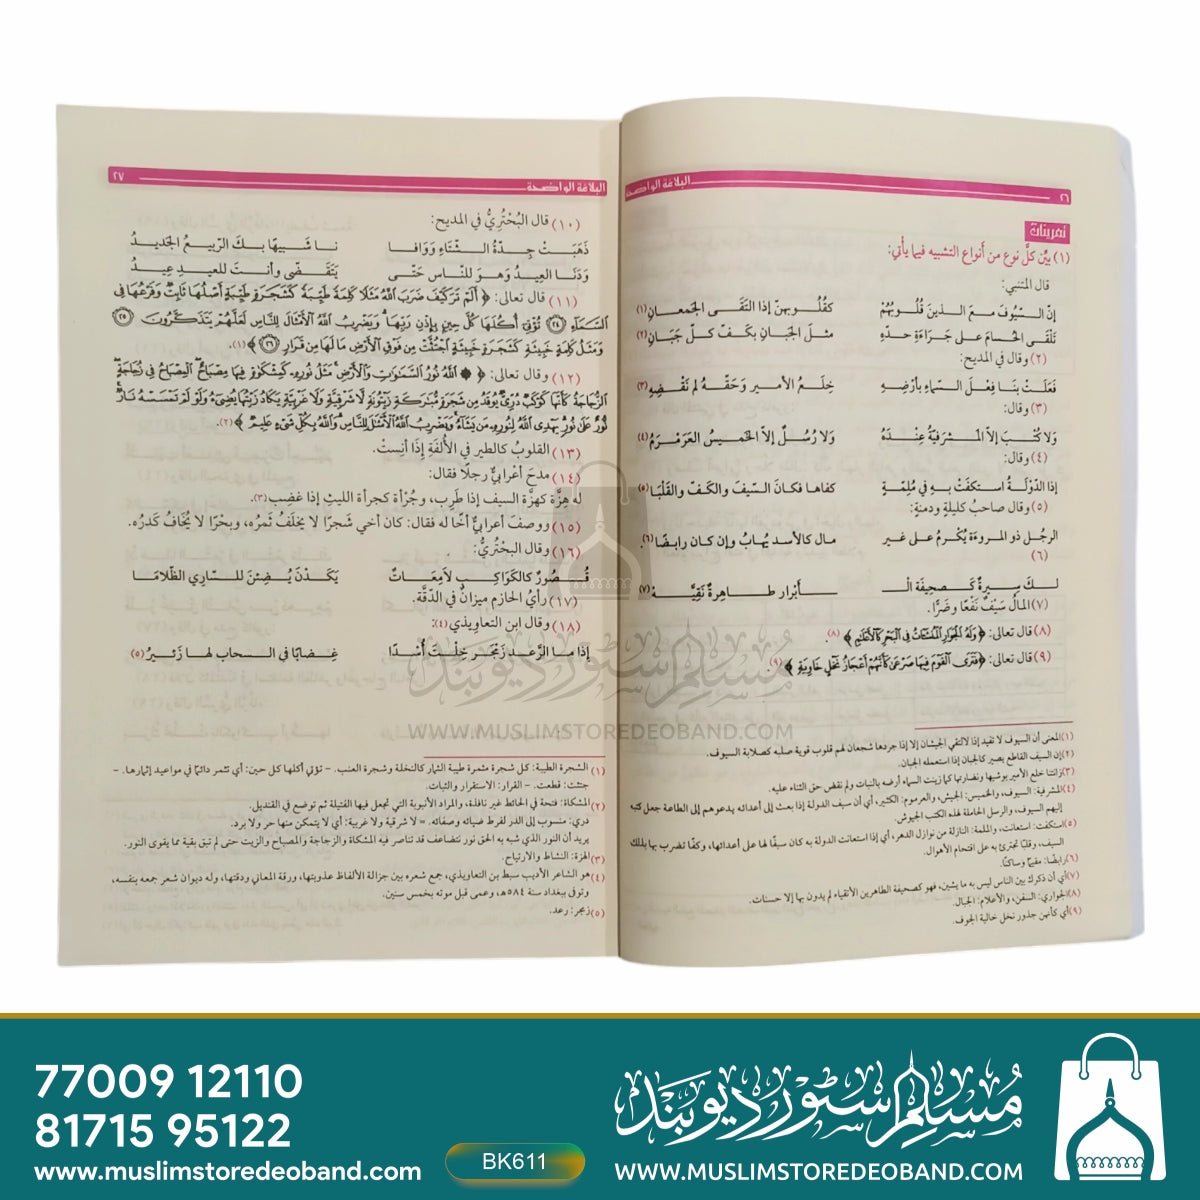 ٢٦ البلاغة الواضحة
تمرينات
(١) بيِّن كلَّ نوع من أنواع التشبيه فيما يأتي:
قال المتنبي:
إنّ السّيُوفَ معَ الذينَ قُلُوبُهُمْ كقُلُوبهنّ إذا التَقَى الجَمعانِ(١)
تَلْقَى الحُسامَ على جَرَاءَةِ حدّهِ مثلَ الجَبانِ بكَفّ كلّ جَبَانِ(٢)
(٢) وقال في المديح:
فَعَلَتْ بنَا فِعْلَ السّماءِ بأرْضِهِ خِلَعُ الأميرِ وَحَقّهُ لم نَقْضِهِ(٣)
(٣) وقال:
وَلا كُتْبَ إلاّ المَشرَفيّةُ عِنْدَهُ وَلا رُسُلٌ إلاّ الخَميسُ العَرَمْرَمُ(٤)
(٤) وقال:
إذا الدّوْلَةُ استكفَتْ بهِ في مُلِمّةٍ كفاها فكانَ السّيفَ والكَفّ والقَلْبَا(٥)
(٥) وقال صاحبُ كليلةٍ ودمنةٍ:
الرجُل ذو المروءَة يُكْرمُ على غير مال كالأسد يُهابُ وإن كان رابضًا(٦).
(٦)
لـكَ سِيرةٌ كَـصحِيفَة الـ ـأَبْرار طـاهِرةٌ نَقِيَّـهْ(٧)
(٧) المالُ سَيْفٌ نَفْعًا وضَرًّا.
(٨) قال تعالى: ﴿وَلَهُ الْجَوَارِ الْمُنْشَآتُ فِي الْبَحْرِ كَالْأَعْلَامِ﴾(٨).
(٩) قال تعالى: ﴿فَتَرَى الْقَوْمَ فِيهَا صَرْعَىٰ كَأَنَّهُمْ أَعْجَازُ نَخْلٍ خَاوِيَةٍ﴾(٩).
(١) المعنى أن السيوف لا تفيد إذا لاالتقي الجيشان إلا إذا جردها شجعان لهم قلوب قوية صلبه كصلابة السيوف.
(٢) إن السيف القاطع يصير كالجبان إذا استعمله الجبان.
(٣) زانتنا خلع الأمير بوشيها ونضارتها كما زينت السماء أرضه بالنبات ولم نقض حق الثناء عليه.
(٤) المشرفية: السيوف، والخميس: الجيش، والعرموم: الكثير، أي أن سيف الدولة إذا بعث إلى أعدائه يدعوهم إلى الطاعة جعل كتبه
إليهم السيوف، والرسل الحاملة لهذه الكتب الجيوش.
(٥) استكفت: استعانت، والملمة: النازلة من نوازل الدهر، أي إذا استعانت الدولة به كان سيفًا لها على أعدائها، وكفًا تضرب بها بذلك
السيف، وقلبًا تجترئ به على اقتحام الأهوال.
(٦) رابضًا: مقيمًا وساكنًا.
(٧) أي أن ذكرك بين الناس ليس به ما يشين، فهو كصحيفة الطاهرين الأتقياء لم يدون بها إلا حسنات.
(٨) الجواري: السفن، والأعلام: الجبال.
(٩) أي كأنهن جذور نخل خالية الجوف.
البلاغة الواضحة ٢٧
(١٠) قال البُحْتُرِيُّ في المديح:
ذَهَبَتْ جِدّةُ الشّتَاءِ وَوَافا نا شَبيهًا بكَ الرّبيعُ الجَديدُ
وَدَنَا العِيدُ وَهوَ للنّاسِ حَتّى يَتَقَضّى وأنتَ للعيدِ عِيدُ
(١١) قال تعالى: ﴿أَلَمْ تَرَ كَيْفَ ضَرَبَ اللَّهُ مَثَلًا كَلِمَةً طَيِّبَةً كَشَجَرَةٍ طَيِّبَةٍ أَصْلُهَا ثَابِتٌ وَفَرْعُهَا فِي
السَّمَاءِ ٢٤ تُؤْتِي أُكُلَهَا كُلَّ حِينٍ بِإِذْنِ رَبِّهَا وَيَضْرِبُ اللَّهُ الْأَمْثَالَ لِلنَّاسِ لَعَلَّهُمْ يَتَذَكَّرُونَ ٢٥
وَمَثَلُ كَلِمَةٍ خَبِيثَةٍ كَشَجَرَةٍ خَبِيثَةٍ اجْتُثَّتْ مِنْ فَوْقِ الْأَرْضِ مَا لَهَا مِنْ قَرَارٍ ٢٦﴾(١).
(١٢) وقال تعالى: ﴿اللَّهُ نُورُ السَّمَاوَاتِ وَالْأَرْضِ مَثَلُ نُورِهِ كَمِشْكَاةٍ فِيهَا مِصْبَاحٌ الْمِصْبَاحُ فِي زُجَاجَةٍ
الزُّجَاجَةُ كَأَنَّهَا كَوْكَبٌ دُرِّيٌّ يُوقَدُ مِنْ شَجَرَةٍ مُبَارَكَةٍ زَيْتُونَةٍ لَا شَرْقِيَّةٍ وَلَا غَرْبِيَّةٍ يَكَادُ زَيْتُهَا يُضِيءُ وَلَوْ لَمْ تَمْسَسْهُ نَارٌ
نُورٌ عَلَىٰ نُورٍ يَهْدِي اللَّهُ لِنُورِهِ مَنْ يَشَاءُ وَيَضْرِبُ اللَّهُ الْأَمْثَالَ لِلنَّاسِ وَاللَّهُ بِكُلِّ شَيْءٍ عَلِيمٌ﴾(٢).
(١٣) القلوبُ كالطير في الأُلفَةِ إذَا أنِستْ.
(١٤) مدحَ أعْرابيٌّ رجلًا فقال:
له هِزَّة كهزَّة السيف إذا طَرِب، وجُرْأة كجرأة الليثِ إذا غضِب(٣).
(١٥) ووصفَ أعرابيٌّ أخًا له فقال: كان أخي شَجرًا لا يخلَفُ ثَمرُه، وبحْرًا لا يُخَافُ كَدَرُه.
(١٦) وقال البحْتُرِيُّ:
قُصُورٌ كالكَوَاكِبِ لاَمِعَاتٌ يَكَدْنَ يُضِئنَ للسّارِي الظّلامَا
(١٧) رأيُ الحازم ميزانٌ في الدِّقَّة.
(١٨) وقال ابن التعاويذي(٤):
إذَا ما الرّعد زَمْجَر خِلْتَ أُسْدًا غِضابًا في السحاب لها زَئيرُ(٥)
(١) الشجرة الطيبة: كل شجرة مثمرة طيبة الثمار كالنخلة وشجرة العنب. – تؤتي أكلها كل حين: أي تثمر دائمًا في مواعيد إثمارها. –
جتثت: قطعت. – القرار: الاستقرار والثبات.
(٢) المشكاة: فتحة في الحائط غير نافذة، والمراد الأنبوبة التي تجعل فيها الفتيلة ثم توضع في القنديل.
دري: منسوب إلى الدر لفرط ضيائه وصفائه. = لا شرقية ولا غربية: أي لا يتمكن منها حر ولا برد.
يريد أن النور الذي شبه به الحق نور تتضاعف قد تناصر فيه المشكاة والزجاجة والمصباح والزيت حتى لم تبق بقية مما يقوي النور.
(٣) الهزة: النشاط والارتياح.
(٤) هو الشاعر الأديب سبط بن التعاويذي، جمع شعره بين جزالة الألفاظ عذوبتها، ورقة المعاني ودقتها، وله ديوان شعر جمعه بنفسه،
وتوفى ببغداد سنة ٥٨٤هـ، وعمى قبل موته بخمس سنين.
(٥) زمجر: رعد.
مسلم سٹور دیوبند
WWW.MUSLIMSTOREDEOBAND.COM
77009 12110
81715 95122
www.muslimstoredeoband.com
BK611
مسلم سٹور دیوبند
WWW.MUSLIMSTOREDEOBAND.COM